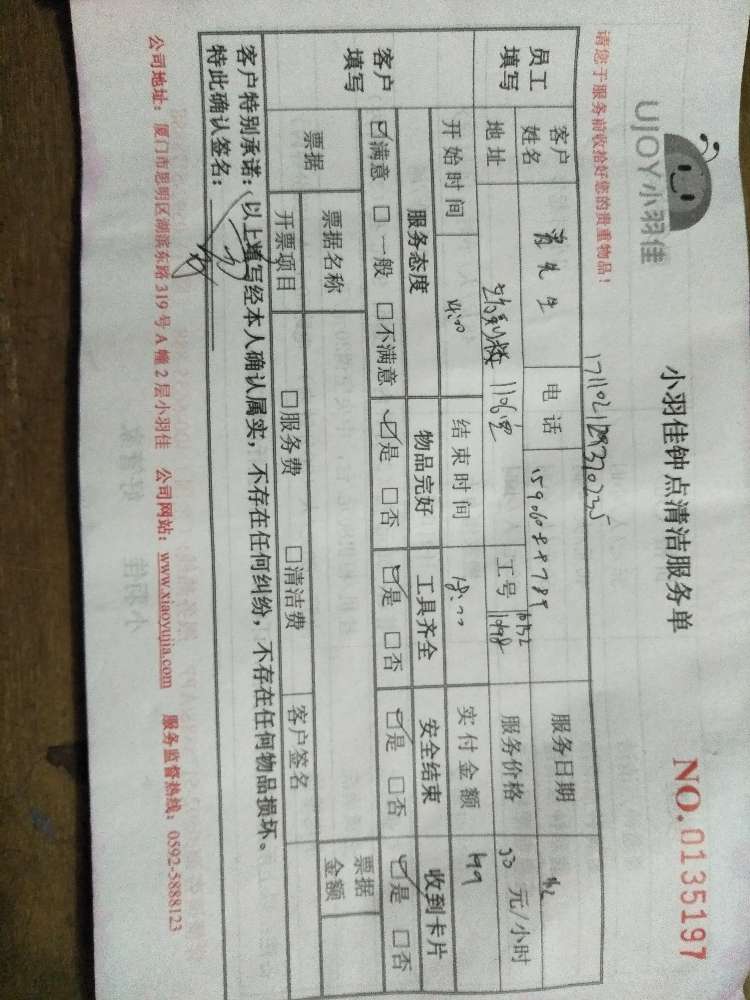 UJOY小羽佳
小羽佳钟点清洁服务单
NO.0135197
请您于服务前收拾好您的贵重物品！
员工填写
客户姓名 先生 电话 服务日期
地址 1106室 工号 服务价格 元/小时
开始时间 14:00 结束时间 18:00 实付金额 149
客户填写
服务态度 物品完好 工具齐全 安全结束 收到卡片
☑满意 □一般 □不满意 ☑是 □否 ☑是 □否 ☑是 □否 ☑是 □否
票据 票据名称 票据金额
开票项目 □服务费 □清洁费 客户签名
客户特别承诺：（以上填写经本人确认属实，不存在任何纠纷，不存在任何物品损坏。
特此确认签名：
公司地址：厦门市思明区湖滨东路319号A幢2层小羽佳 公司网站：www.xiaoyujia.com 服务监督热线：0592-5888123